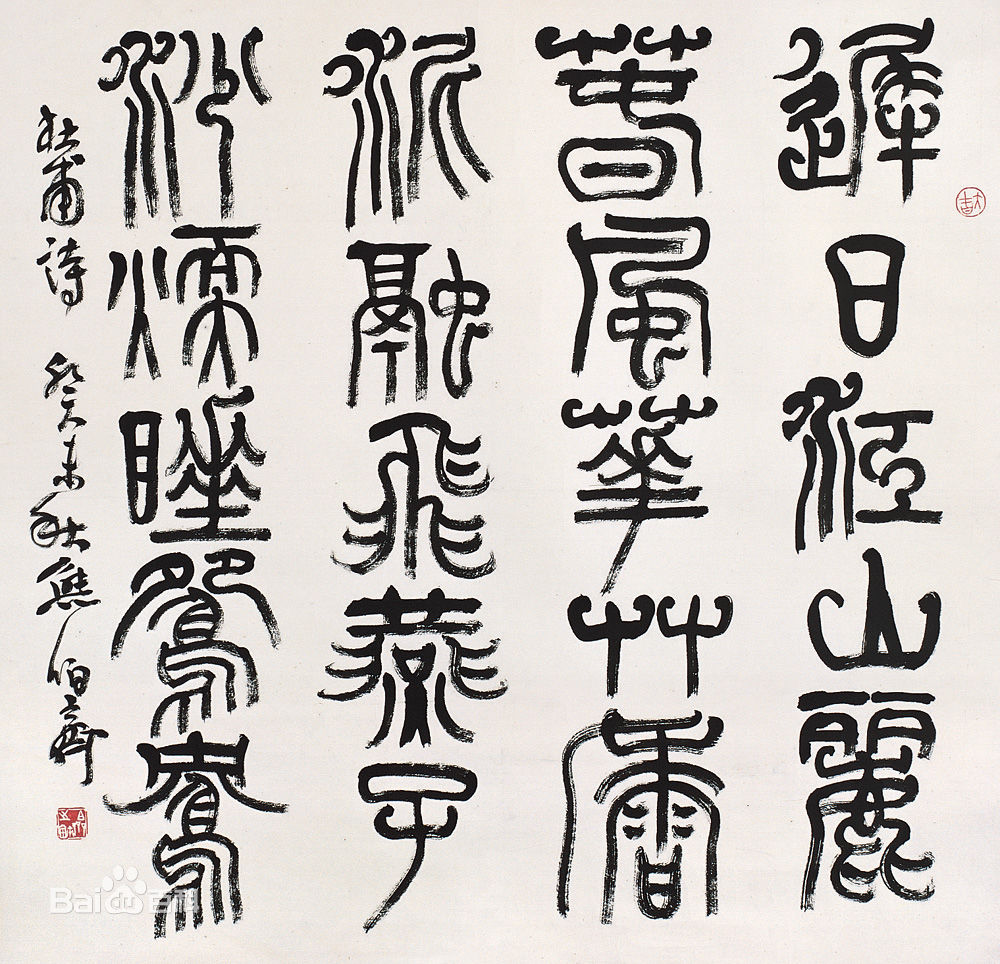 遲日江山麗
春風華艸香
泥融飛燕子
沙煗睡鴛鴦
杜甫詩 癸未秋熊伯齊
Bai百科